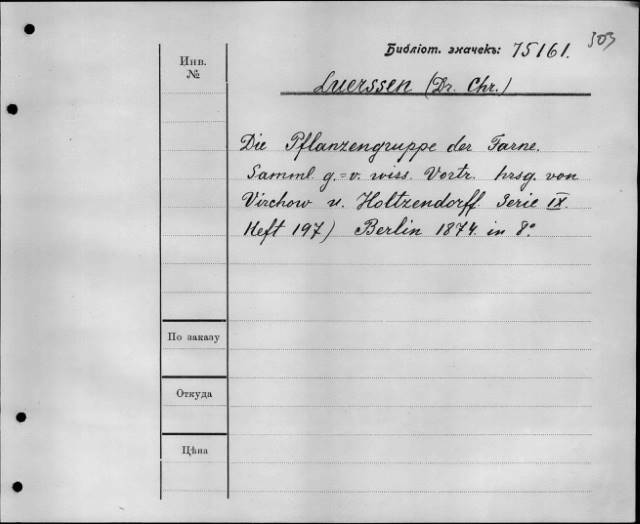 303
Библіот. значекъ: 75161.
Инв.
№
Luerssen (Dr. Chr.)
Die Pflanzengruppe der Farne.
Samml. g.=v. wiss. Vortr. hrsg. von
Virchow u. Holtzendorff. Serie IX.
Heft 197) Berlin 1874. in 8°
По заказу
Откуда
Цѣна